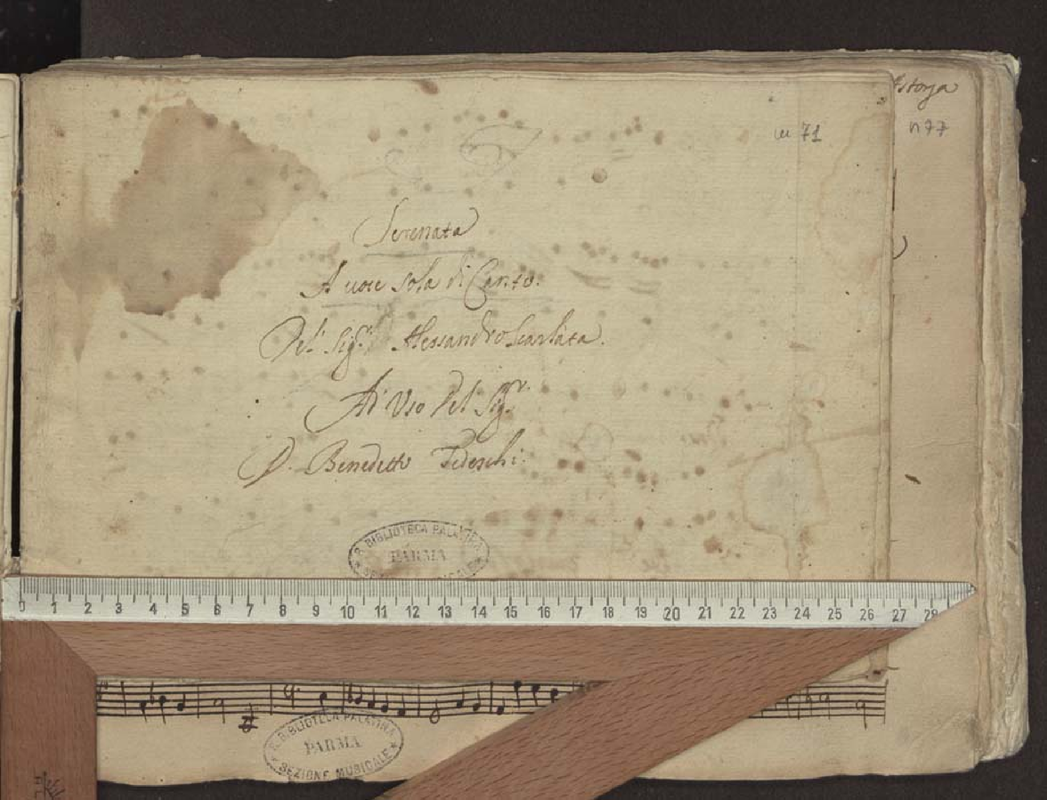 Astorga
n 77
n 71
Serenata
A voce sola di Canto.
Del Sig.r Alessandro Scarlata.
Ad Uso Del Sig.r
D. Benedetto Tedeschi.
R. BIBLIOTECA PALATINA
PARMA
SEZIONE MUSICALE
0 1 2 3 4 5 6 7 8 9 10 11 12 13 14 15 16 17 18 19 20 21 22 23 24 25 26 27 28
R. BIBLIOTECA PALATINA
PARMA
SEZIONE MUSICALE